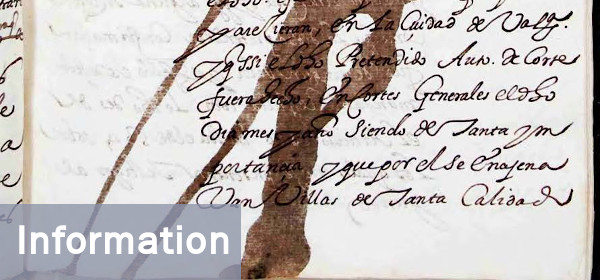 parecieran, en La Ciudad de Vallᵈ.
y q̃ ssi el dho Pretendido Auto. de Cortes
fuera hecho, en Cortes Generales el dho
Dia mes y año Siendo de Tanta ym
portançia y que por el Se enajena
Van Villas de Tanta Calidad
Information